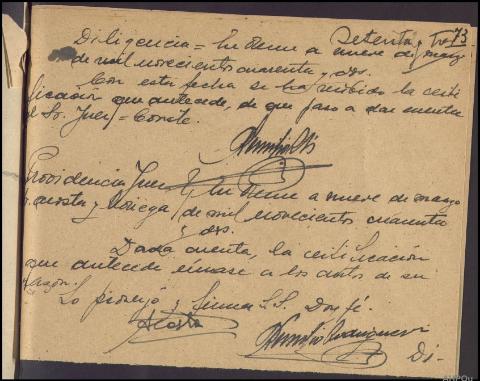 73
Setenta y Tres
Diligencia = En Orense a nueve de marzo
de mil novecientos cuarenta y dos.
Con esta fecha se ha recibido la certi
ficación que antecede, de que paso a dar cuenta
al Sr. Juez = Conste.
Providencia Juez En Orense a nueve de marzo
Acosta y Noriega de mil novecientos cuarenta
y dos.
Dada cuenta, la certificación
que antecede únase a los autos de su
razón.
Lo proveyó y firma S.S. Doy fé.
Acosta
Rodriguez
Di-